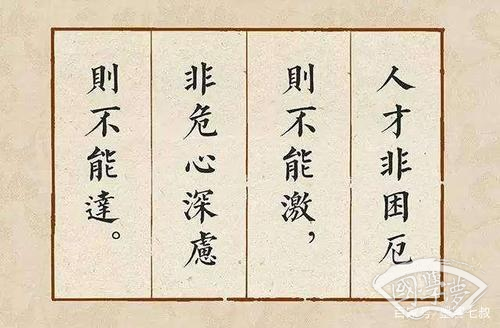 人才非困厄
則不能激，
非危心深慮
則不能達。
國學夢